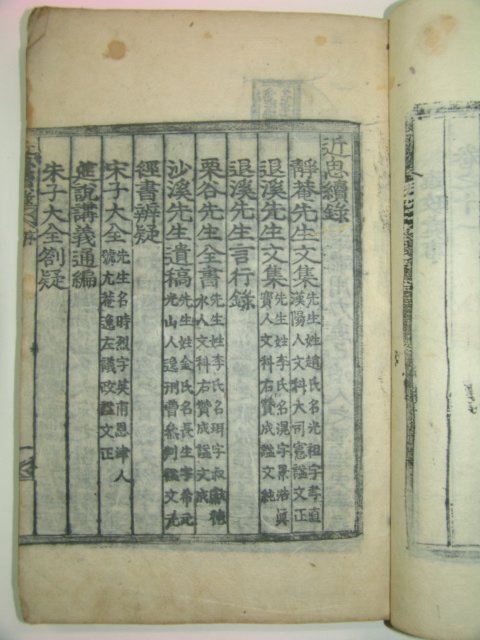 近思續錄
靜菴先生文集 先生姓趙氏名光祖字孝直
漢陽人文科大司憲謚文正
退溪先生文集 先生姓李氏名滉字景浩眞
寳人文科右贊成謚文純
退溪先生言行錄
栗谷先生全書 先生姓李氏名珥字叔獻德
水人文科右贊成謚文成
沙溪先生遺稿 先生姓金氏名長生字希元
光山人逸刑曹參判謚文元
經書辨疑
宋子大全 先生名時烈字英甫恩津人
號尤菴逸左議政謚文正
筵說講義通編
朱子大全劄疑